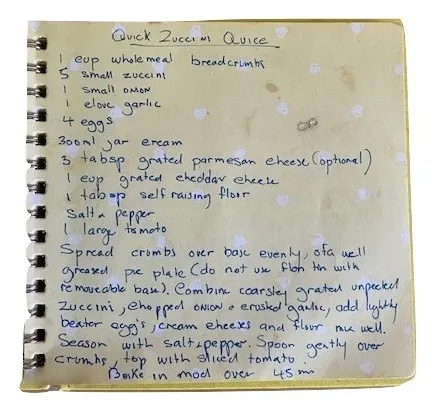 Quick Zuccini Quice
1 cup wholemeal breadcrumbs
5 small zuccini
1 small onion
1 clove garlic
4 eggs
300ml jar cream
3 tabsp grated parmesan cheese (optional)
1 cup grated cheddar cheese
1 tabsp self raising flour
Salt & pepper
1 large tomato
Spread crumbs over base evenly, of a well
greased pie plate (do not use flan tin with
removeable base). Combine coarsley grated unpeeled
zuccini, chopped onion & crushed garlic, add lightly
beaten egg's, cream cheeses and flour mix well.
Season with salt & pepper. Spoon gently over
crumbs, top with sliced tomato.
Bake in mod over 45 min